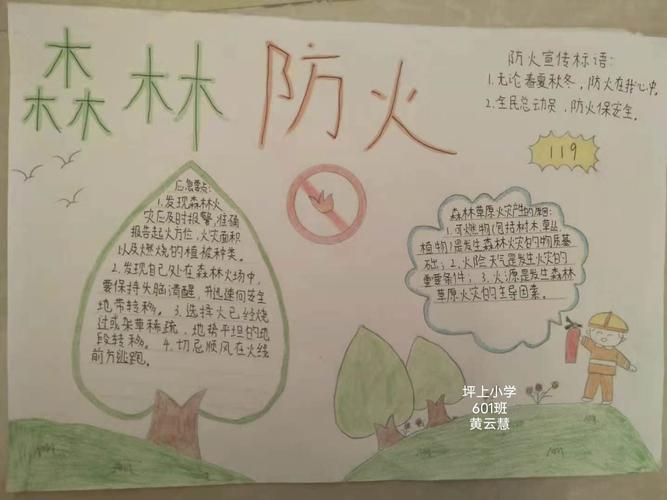 森林防火
防火宣传标语:
1.无论春夏秋冬，防火在我心中。
2.全民总动员，防火保安全。
119
应急要点:
1.发现森林火
灾应及时报警,准确
报告起火方位,火灾面积
以及燃烧的植被种类。
2.发现自己处在森林火场中,
要保持头脑清醒，并迅速向安全
地带转移。3.选择火已经烧
过或杂草稀疏、地势平坦的地
段转移。4.切忌顺风在火线
前方逃跑。
森林草原火灾产生的原因:
1.可燃物(包括树木.草丛
植物)是发生森林火灾的物质基
础;2.火险天气是发生火灾的
重要条件;3.火源是发生森林
草原火灾的主导因素。
坪上小学
601班
黄云慧